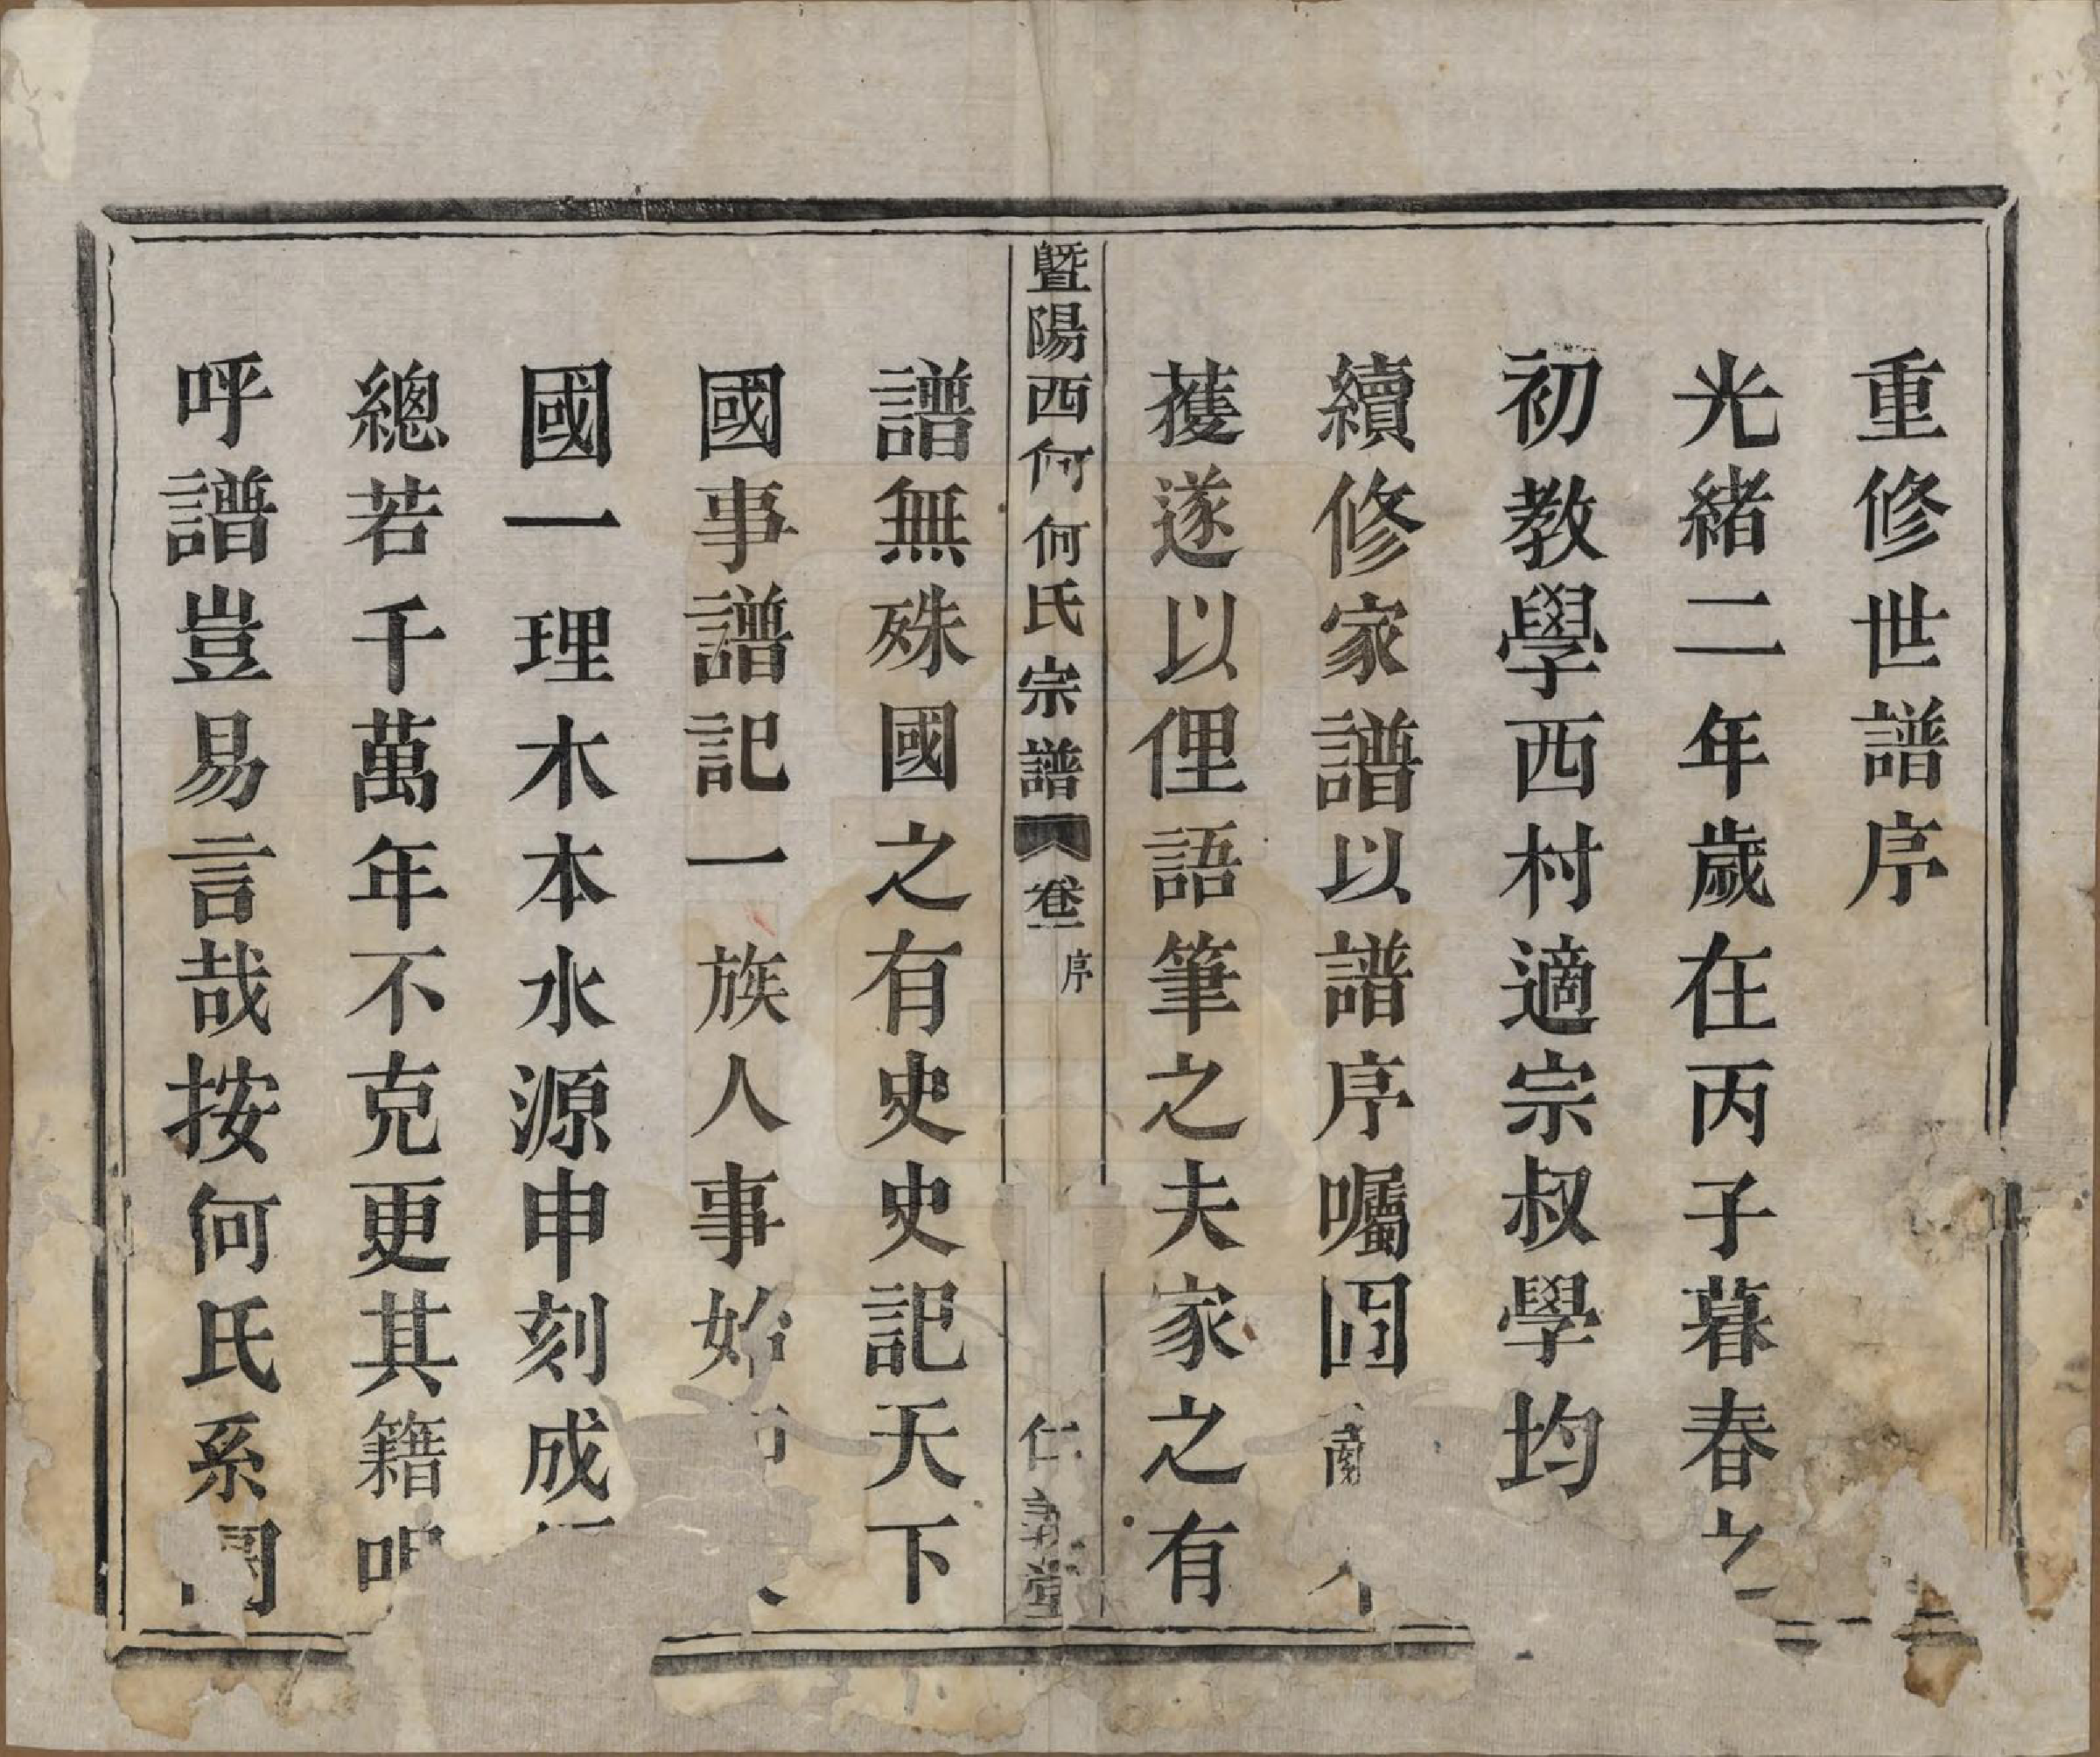 重修世譜序
光緒二年歲在丙子暮春之
初教學西村適宗叔學均
續修家譜以譜序囑囙
蒦遂以俚語筆之夫家之有
暨陽西何何氏宗譜
卷一
序
仁義堂
譜無殊國之有史史記天下
國事譜記一族人事始
國一理木本水源申刻成
總若千萬年不克更其籍
呼譜豈易言哉按何氏系